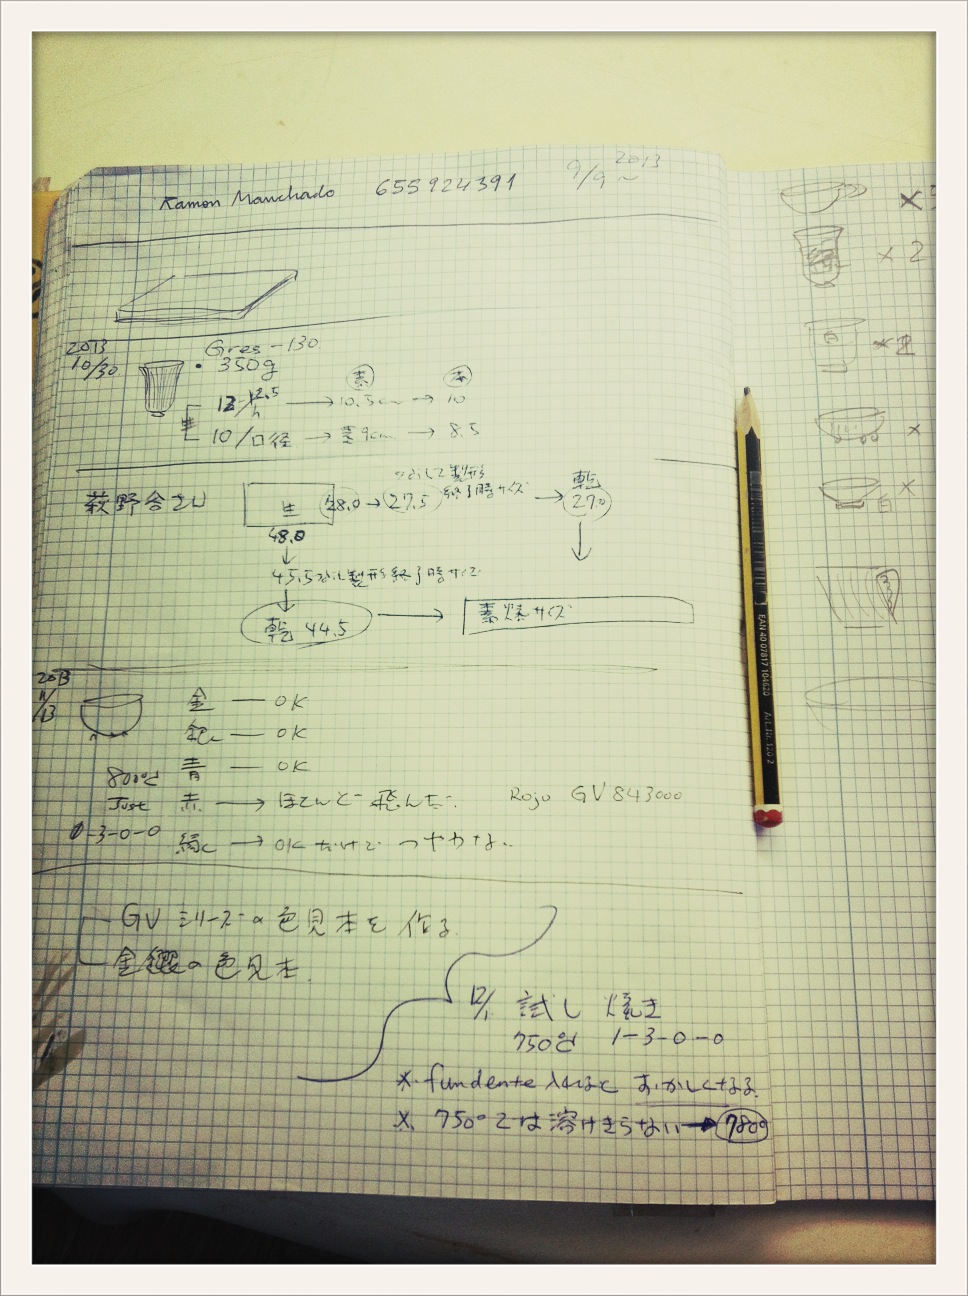 Ramon Manchado 655924391 9/9~ 2013
2013
10/30
Gres-130
• 350g
素 本
12 12.5/h → 10.5cm → 10
生
10/口径 → 9cm → 8.5
荻野谷さん
生 28.0 → 27.5 製形終了時サイズ → 乾 27.0
48.0
45.5 製形終了時サイズ
乾 44.5 → 素焼サイズ
2013
11/13
金 — OK
銀 — OK
青 — OK
800℃
Just
赤 → ほとんど飛んだ. Rojo GV 843000
0-3-0-0
緑 → OK だけど つやがない
GV シリーズの色見本を作る.
金銀の色見本.
12/1 試し焼き
750℃ 1-3-0-0
*. fundente 入れると おかしくなる.
*. 750°では溶けきらない → 780°
×
× 2
×
×
×
白
EAN 40 07817 104620 Art. Nr. 120 2